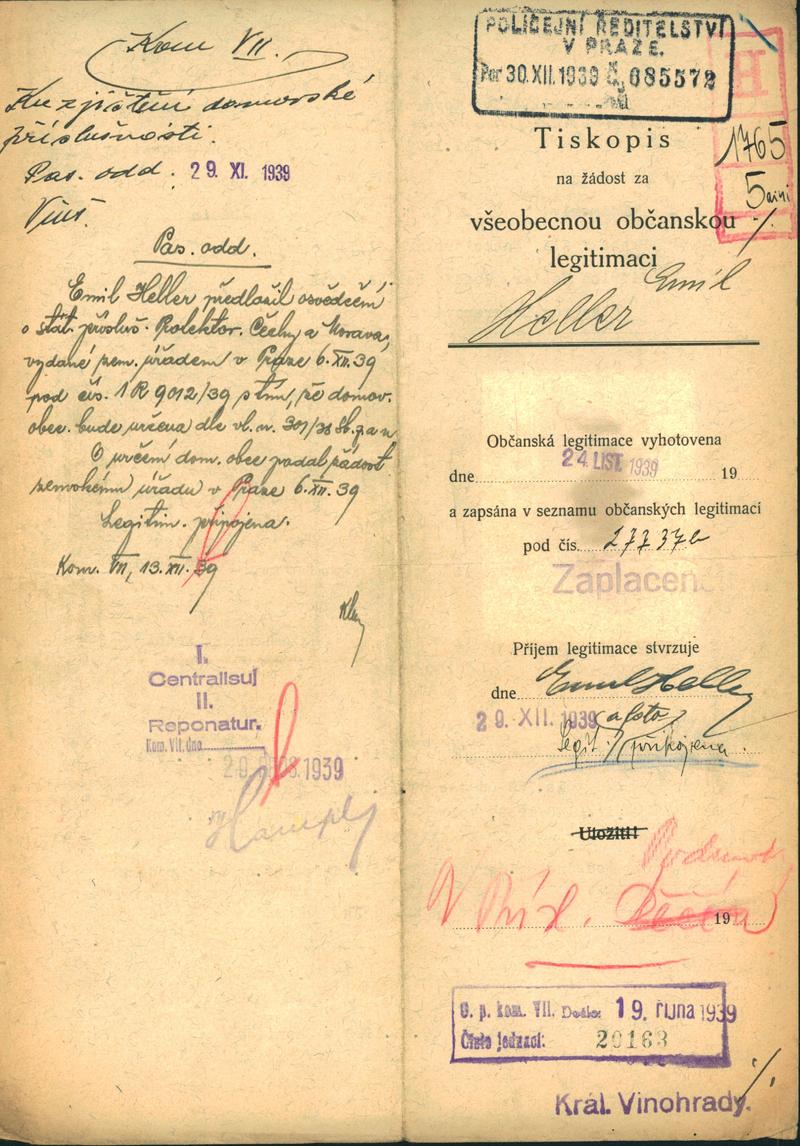 Kom VII.
Ku zjištění domovské
příslušnosti.
Pas. odd. 29 XI. 1939
Pas. odd.
Emil Heller předložil osvědčení
o stát. přísluš. Protektor. Čechy a Morava,
vydané zem. úřadem v Praze 6.XII.39
pod čís. 1R 9012/39 s tím, že domov.
obec bude určena dle vl. n. 301/38 Sb. z a n.
O určení dom. obce podal žádost
zemskému úřadu v Praze 6.XII.39
Legitim. připojena.
Kom. VII, 13.XII.39
I.
Centralisuj
II.
Reponatur.
Kom. VII. dne
1939
POLICEJNÍ ŘEDITELSTVÍ
V PRAZE.
Per 30.XII.1939 Č. 085572
1765
5
Tiskopis
na žádost za
všeobecnou občanskou
legitimaci
Emil
Heller
Občanská legitimace vyhotovena
dne 24. LIST. 1939 19
a zapsána v seznamu občanských legitimací
pod čís. 277376
Zaplaceno
Příjem legitimace stvrzuje
dne Emil Heller
29. XII. 1939 (a foto)
Legit. připojena.
Uložiti!
V Příl.
19
O. p. kom. VII. Došlo: 19. října 1939
Číslo jednací: 20163
Král. Vinohrady.